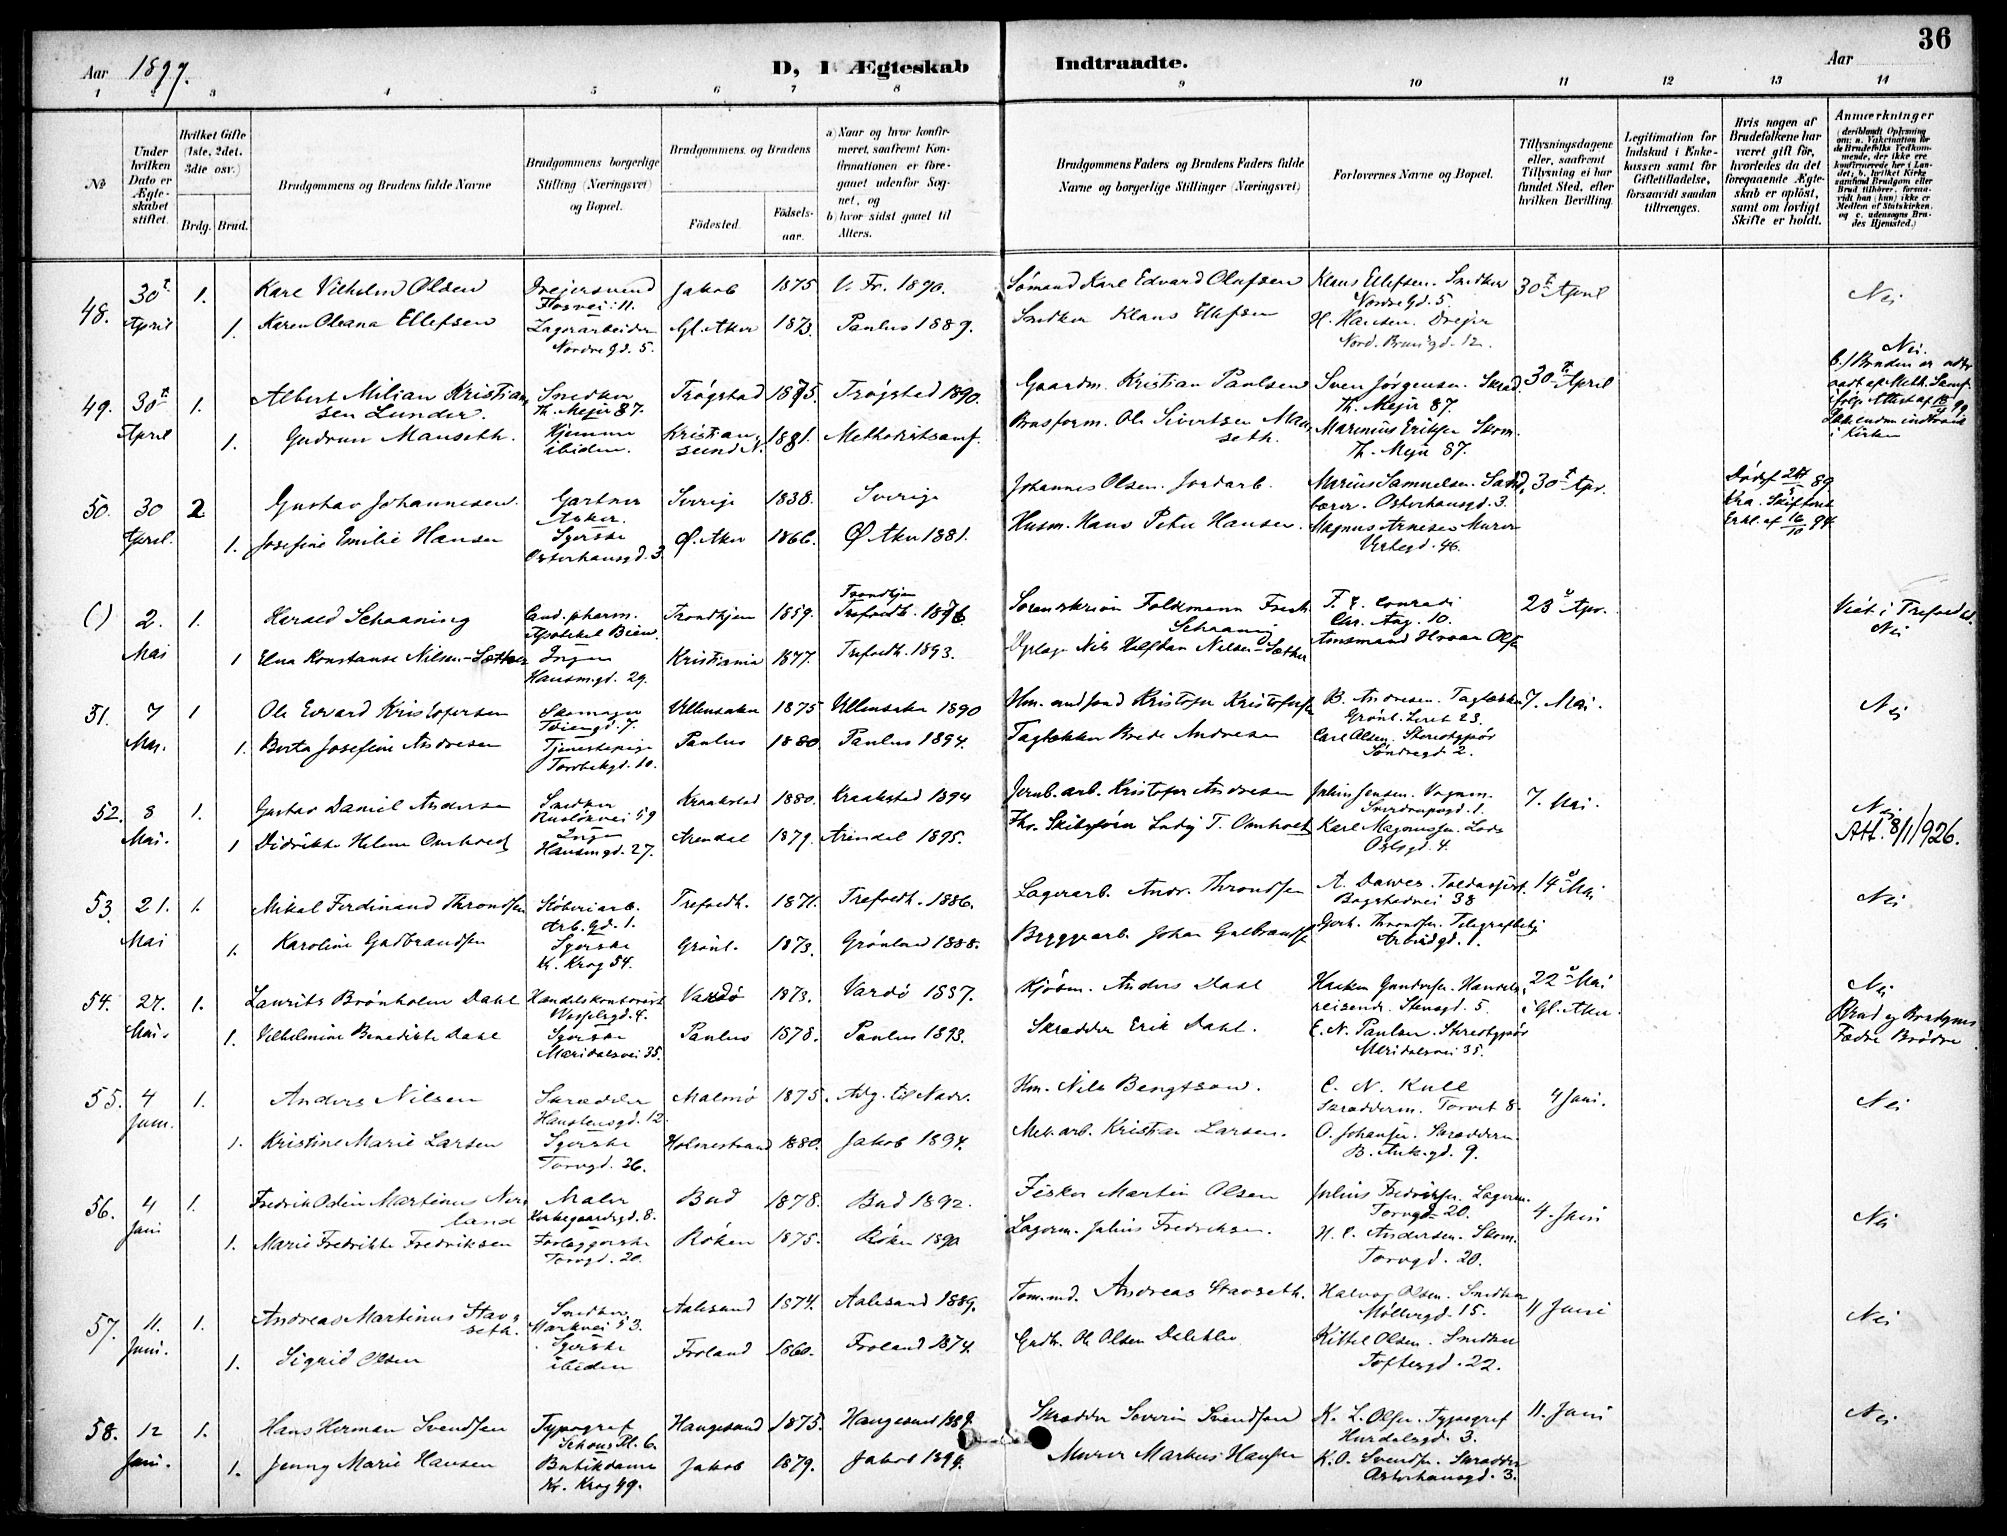 36
Aar 1897.
D, I Ægteskab Indtraadte.
Aar
1 2 3 4 5 6 7 8 9 10 11 12 13 14
№
Under hvilken Dato er Ægteskabet stiftet.
Hvilket Gifte (1ste, 2det, 3die osv.)
Brdg. Brud.
Brudgommens og Brudens fulde Navne
Brudgommens borgerlige Stilling (Næringsvei) og Bopæl.
Brudgommens og Brudens
Fødested.
Fødselsaar.
a) Naar og hvor konfirmeret, saafremt Konfirmationen er foregaaet udenfor Sognet, og
b) hvor sidst gaaet til Alters.
Brudgommens Faders og Brudens Faders fulde Navne og borgerlige Stillinger (Næringsvei)
Forlovernes Navne og Bopæl.
Tillysningsdagene eller, saafremt Tillysning ei har fundet Sted, efter hvilken Bevilling.
Legitimation for Indskud i Enkekassen samt for Giftetilladelse, forsaavidt saadan tiltrænges.
Hvis nogen af Brudefolkene har været gift før, hvorledes da det foregaaende Ægteskab er opløst, samt om lovligt Skifte er holdt.
Anmærkninger
48. 30t April 1. Karl Vilhelm Olsen Drejersvend Fossvei. 11. Jakob 1875 V. Fr. 1890. Sømand Karl Edvard Olafsen Klaus Ellefsen. Snedker Nordre Gd. 5. 30t April Nei
1. Karen Oleana Ellefsen Lagerarbeider Nordre Gd. 5. Gl. Aker 1873 Paulus 1889. Snedker Klaus Ellefsen H. Hansen. Drejer
49. 30t April 1. Albert Milian Kristiansen Lunder. Snedker Th. Mejer 87. Trøgstad 1875. Trøgstad 1890. Gaardm. Kristian Paulsen Sven Jørgensen. Skrad. Th. Mejer 87. 30t April Nei.
1. Gudrun Manseth. Hjemme ibidem. Kristiansund N. 1881. Methodistsamf. Ole Sivertsen Manseth. Marinius Eriksen Skom. Th. Mejer 87.
i Kirken
50. 30 April. 2 Gustav Johannesen. Gartner Aker. Sverige 1838. Sverige Johannes Olsen. Jordarb. Marius Samuelsen. Osterhausgd. 3. 30t Apr.
1. Josefine Emilie Hansen Syerske Osterhausgd. 3. Ø. Aker 1866. Ø Aker 1881. Husm. Hans Peter Hansen. Magnus Arnesen Murer Urtegd. 46.
( ) 2. Mai 1. Harald Schaaning Cand. pharm. Trondhjem 1859. Trondhjem Folkmann Schaaning T. F. Conradi Chr. Aug. 10. 23 Apr. Viet i Trefoldh. Nei
1 Elna Konstanse Nilsen-Sæther Ingen Hausmgd. 29. Kristiania 1877. Trefoldh. 1893. Nils Halfdan Nilsen-Sæther Amtsmand
51. 7 Mai. 1 Ole Edvard Kristofersen Skomager Tøiengd. 7. Ullensaker 1875 Ullensaker 1890 Kristofer Kristofersen B. Andresen. Tagtækker Grønl. Leret 23. 7. Mai. Nei
1. Berta Josefine Andresen Tjenestepige Torvbakgd. 10. Paulus 1880 Paulus 1894. Tagtækker Brede Andresen Carl Olsen. Stereotypør Søndregd. 2.
52. 8 Mai. 1. Gustav Daniel Andersen Snedker Ruseløkvei 59 Kraakstad 1880. Kraakstad 1894 Jernb. arb. Kristofer Andresen Julius Jensen. Vognm. Sverdrupsgd. 1. 7. Mai. Nei
1 Didrikke Helene Omholt Ingen Hausmgd. 27. Arendal 1879. Arendal 1895. Fhv. Skibsfører T. Omholt Karl Magnussen. Oslogd. 4. Att. 8/11/926.
53. 21. Mai 1. Mikal Ferdinand Throndsen Støberiarb. Arb. Gd. 1. Trefoldh. 1871. Trefoldh. 1886. Lagerarb. Andr. Throndsen A. Dawes. Bogstadvei 38 14 Mai Nei
1. Karoline Gulbrandsen Syerske K. Krog 54. Grønl. 1873. Grønland 1888. Bryggearb. Johan Gulbrandsen Throndsen. Arbeidgd. 1.
54. 27. Mai. 1. Laurits Brønholm Dahl Handelskontorist Wesselsgd. 4. Vardø 1873. Vardø 1887. Kjøbm. Anders Dahl Haakon Gundersen. Handelsreisende. Stensgd. 5. 22 Mai i Gl. Aker Nei
1. Vilhelmine Benedikte Dahl Syerske Maridalsvei 35. Paulus 1878. Paulus 1893. Skrædder Erik Dahl. E. N. Paulsen. Stereotypør Maridalsvei 35. Brud og Brudgoms Fædre Brødre
55. 4 Juni. 1. Anders Nilsen Skrædder Hausmsgd. 12. Malmø 1875. Adg. til Nadv. Hm. Nils Bengtson. C. N. Kull Skræderm. Torvet 8. 4 Juni. Nei
1. Kristine Marie Larsen Syerske Torvgd. 26. Holmestrand 1880. Jakob 1894. Mek. arb. Kristian Larsen. O. Johansen. Skræderm. B. Ankgd. 9.
56. 4 Juni 1. Fredrik Odin Martinus Norland Maler Kirkegaardsgd. 8. Bud 1878. Bud 1892. Fisker Martin Olsen Julius Fredriksen. Lagerm. Torvgd. 20. 4. Juni Nei
1. Marie Fredrikke Fredriksen Torvgd. 20. Røken 1875. Røken 1890 Lagerm. Julius Fredriksen. H. C. Andersen. Skom. Torvgd. 20.
57. 11. Juni. 1. Andreas Martinus Stavseth. Snedker Markvei 53. Aalesund 1874. Aalesund 1889. Tømmd. Andreas Stavseth. Halvor Olsen. Snedker Møllergd. 15. 11 Juni Nei
1. Sigrid Olsen Syerske ibidem Froland 1860. Froland 1874. Ole Olsen Kittel Olsen. Snedker Toftesgd. 22.
58. 12 Juni. 1. Hans Herman Svendsen Typograf Schous Pl. 6. Haugesund 1875. Haugesund 1889. Skrædder Severin Svendsen K. L. Olsen. Typograf Hurdalsgd. 3. 11. Juni Nei
1. Jenny Marie Hansen Butikdame Kr. Krog 49. Jakob 1879. Jakob 1894. Murer Markus Hansen K. O. Svendsen. Skrædder Osterhausgd. 3.